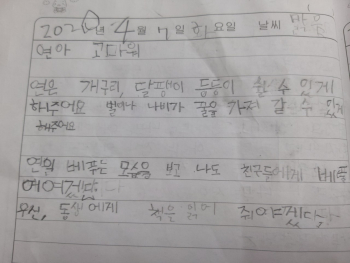 2020년 4월 7일 화요일 날씨 맑음
연아 고마워
연은 개구리, 달팽이 등등이 살 수 있게
해주어요 벌이나 나비가 꿀을 가져 갈 수 있게
해주어요
연의 베푸는 모습을 보고 나도 친구들에게 베풀
어야겠다.
우선, 동생에게 책을 읽어 줘야겠다.